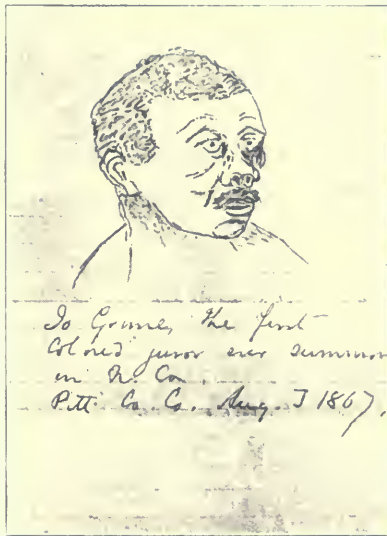 Jo Grimes, the first
Colored juror ever summon
in N. Ca.
Pitt Co. Co. Aug. T 1867,